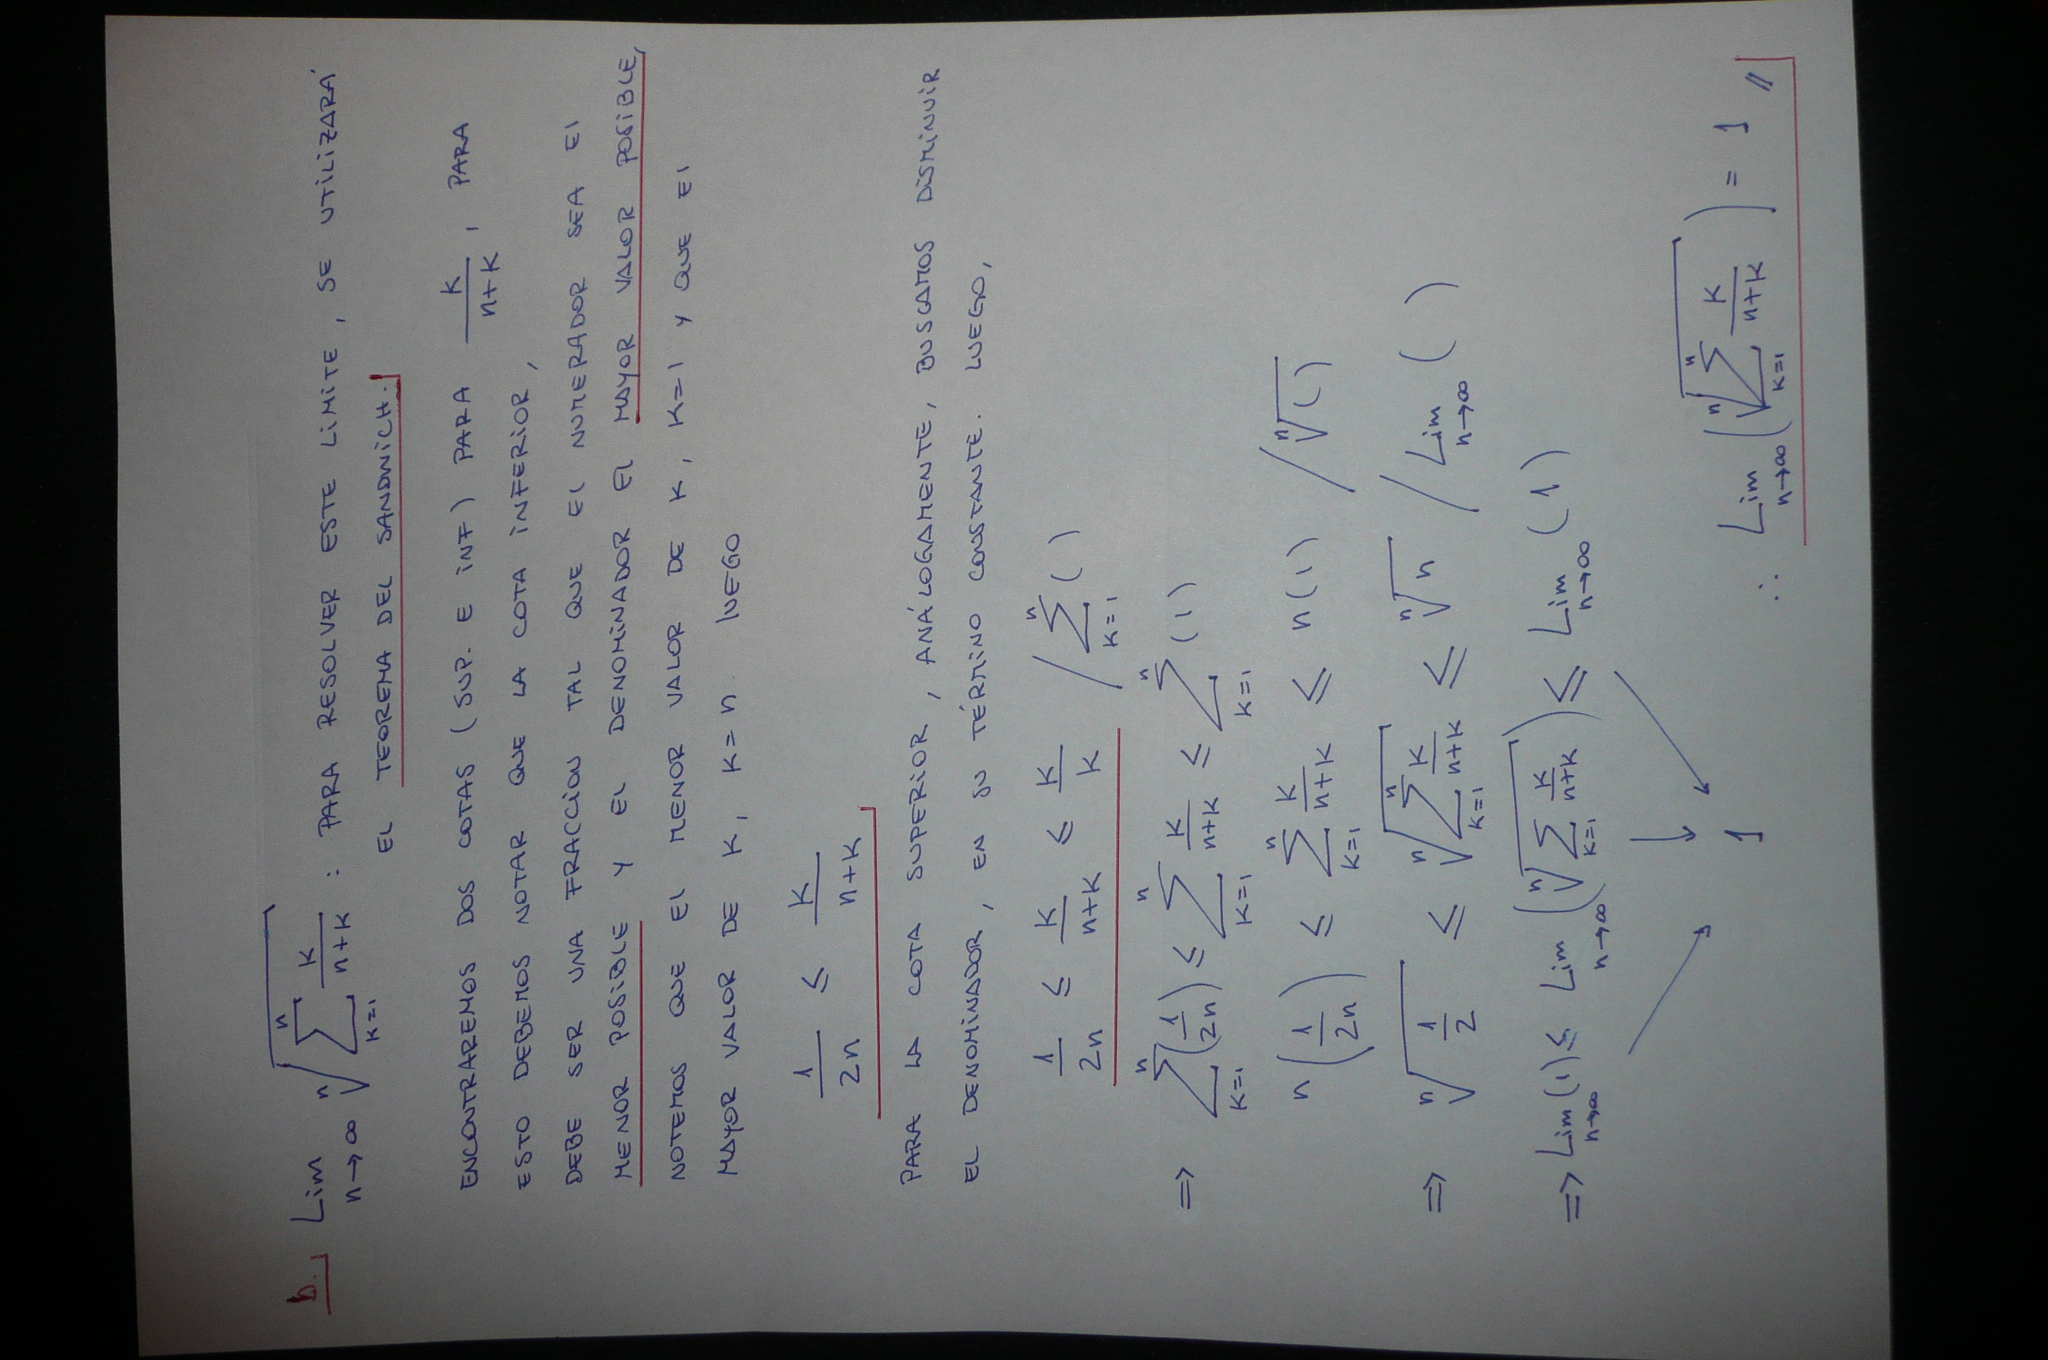 b. Lim n→∞ ⁿ√(∑_{k=1}^{n} k/(n+k)) : PARA RESOLVER ESTE LIMITE, SE UTILIZARÁ
EL TEOREMA DEL SANDWICH.
ENCONTRAREMOS DOS COTAS (SUP. E INF) PARA k/(n+k), PARA
ESTO DEBEMOS NOTAR QUE LA COTA INFERIOR,
DEBE SER UNA FRACCION TAL QUE EL NUMERADOR SEA El
MENOR POSIBLE Y EL DENOMINADOR EL MAYOR VALOR POSIBLE,
NOTEMOS QUE El MENOR VALOR DE K, K=1 Y QUE El
MAYOR VALOR DE K, K=n. lUEGO
1/(2n) ≤ k/(n+k)
PARA LA COTA SUPERIOR, ANÁLOGAMENTE, BUSCAMOS DISMINUIR
EL DENOMINADOR, EN SU TÉRMINO CONSTANTE. LUEGO,
1/(2n) ≤ k/(n+k) ≤ k/k / ∑_{k=1}^{n} ( )
⇒ ∑_{k=1}^{n} (1/(2n)) ≤ ∑_{k=1}^{n} k/(n+k) ≤ ∑_{k=1}^{n} (1)
n(1/(2n)) ≤ ∑_{k=1}^{n} k/(n+k) ≤ n(1) / ⁿ√( )
⇒ ⁿ√(1/2) ≤ ⁿ√(∑_{k=1}^{n} k/(n+k)) ≤ ⁿ√n / Lim n→∞ ( )
⇒ Lim n→∞ (1) ≤ Lim n→∞ (ⁿ√(∑_{k=1}^{n} k/(n+k))) ≤ Lim n→∞ (1)
1
∴ Lim n→∞ (ⁿ√(∑_{k=1}^{n} k/(n+k))) = 1 //